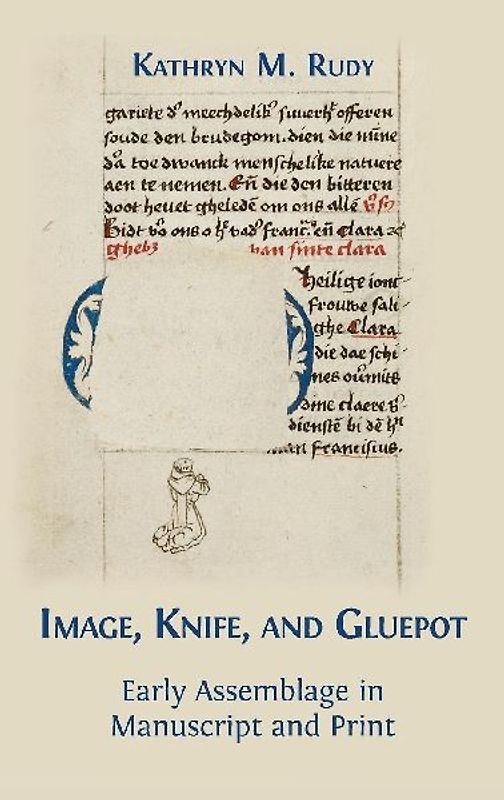 KATHRYN M. RUDY
gariete dʼ meechdelikʼ suuerhʼ offeren
soude den brudegom. dien die mīne
dʼa toe dwanck menschelike natuere
aen te nemen. Eñ die den bitteren
doot heuet gheledē om ons allē
Bidt vʼo ons o hʼ vadʼ francʼ eñ Clara
ghebʒ van sinte clara
Heilige ionc-
frouwe sali-
ghe Clara
die dae schi-
nes oūmits
dine claere
dienstē bi dē
franciscus.
IMAGE, KNIFE, AND GLUEPOT
Early Assemblage in
Manuscript and Print